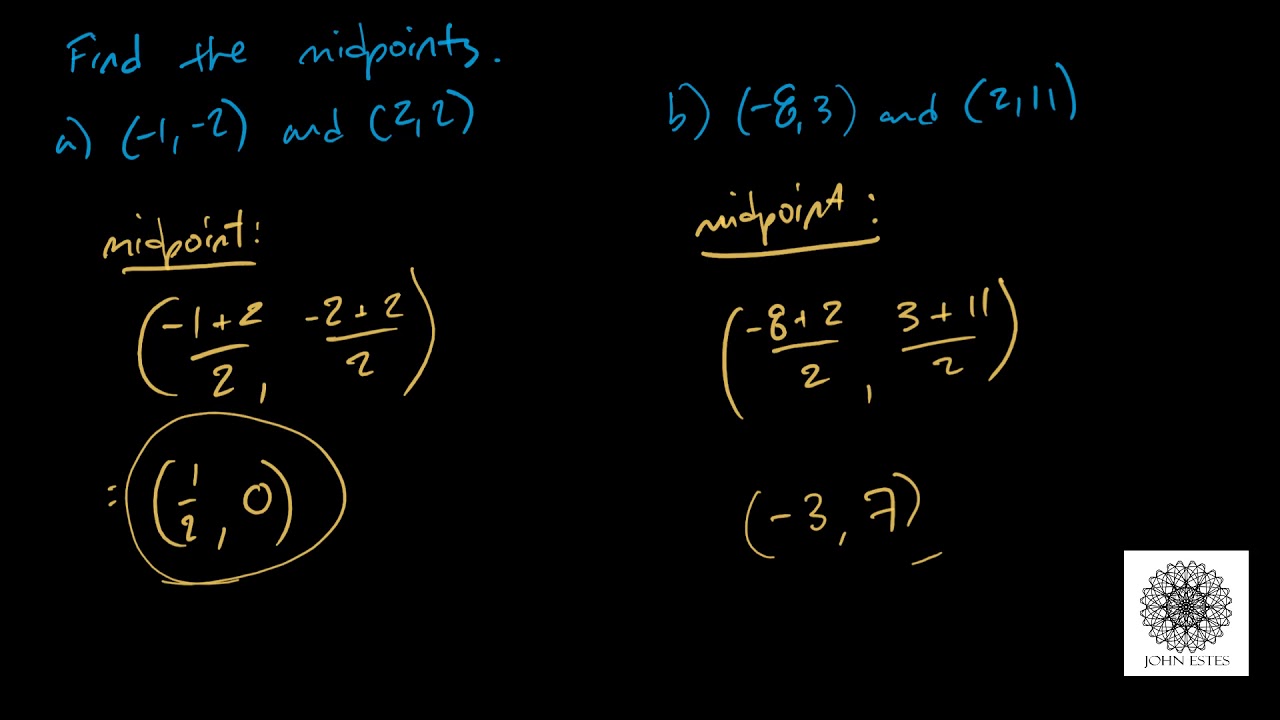 Find the midpoints.
a) (-1,-2) and (2,2)
midpoint:
(-1+2/2, -2+2/2)
= (1/2, 0)
b) (-8,3) and (2,11)
midpoint:
(-8+2/2, 3+11/2)
(-3, 7)
JOHN ESTES